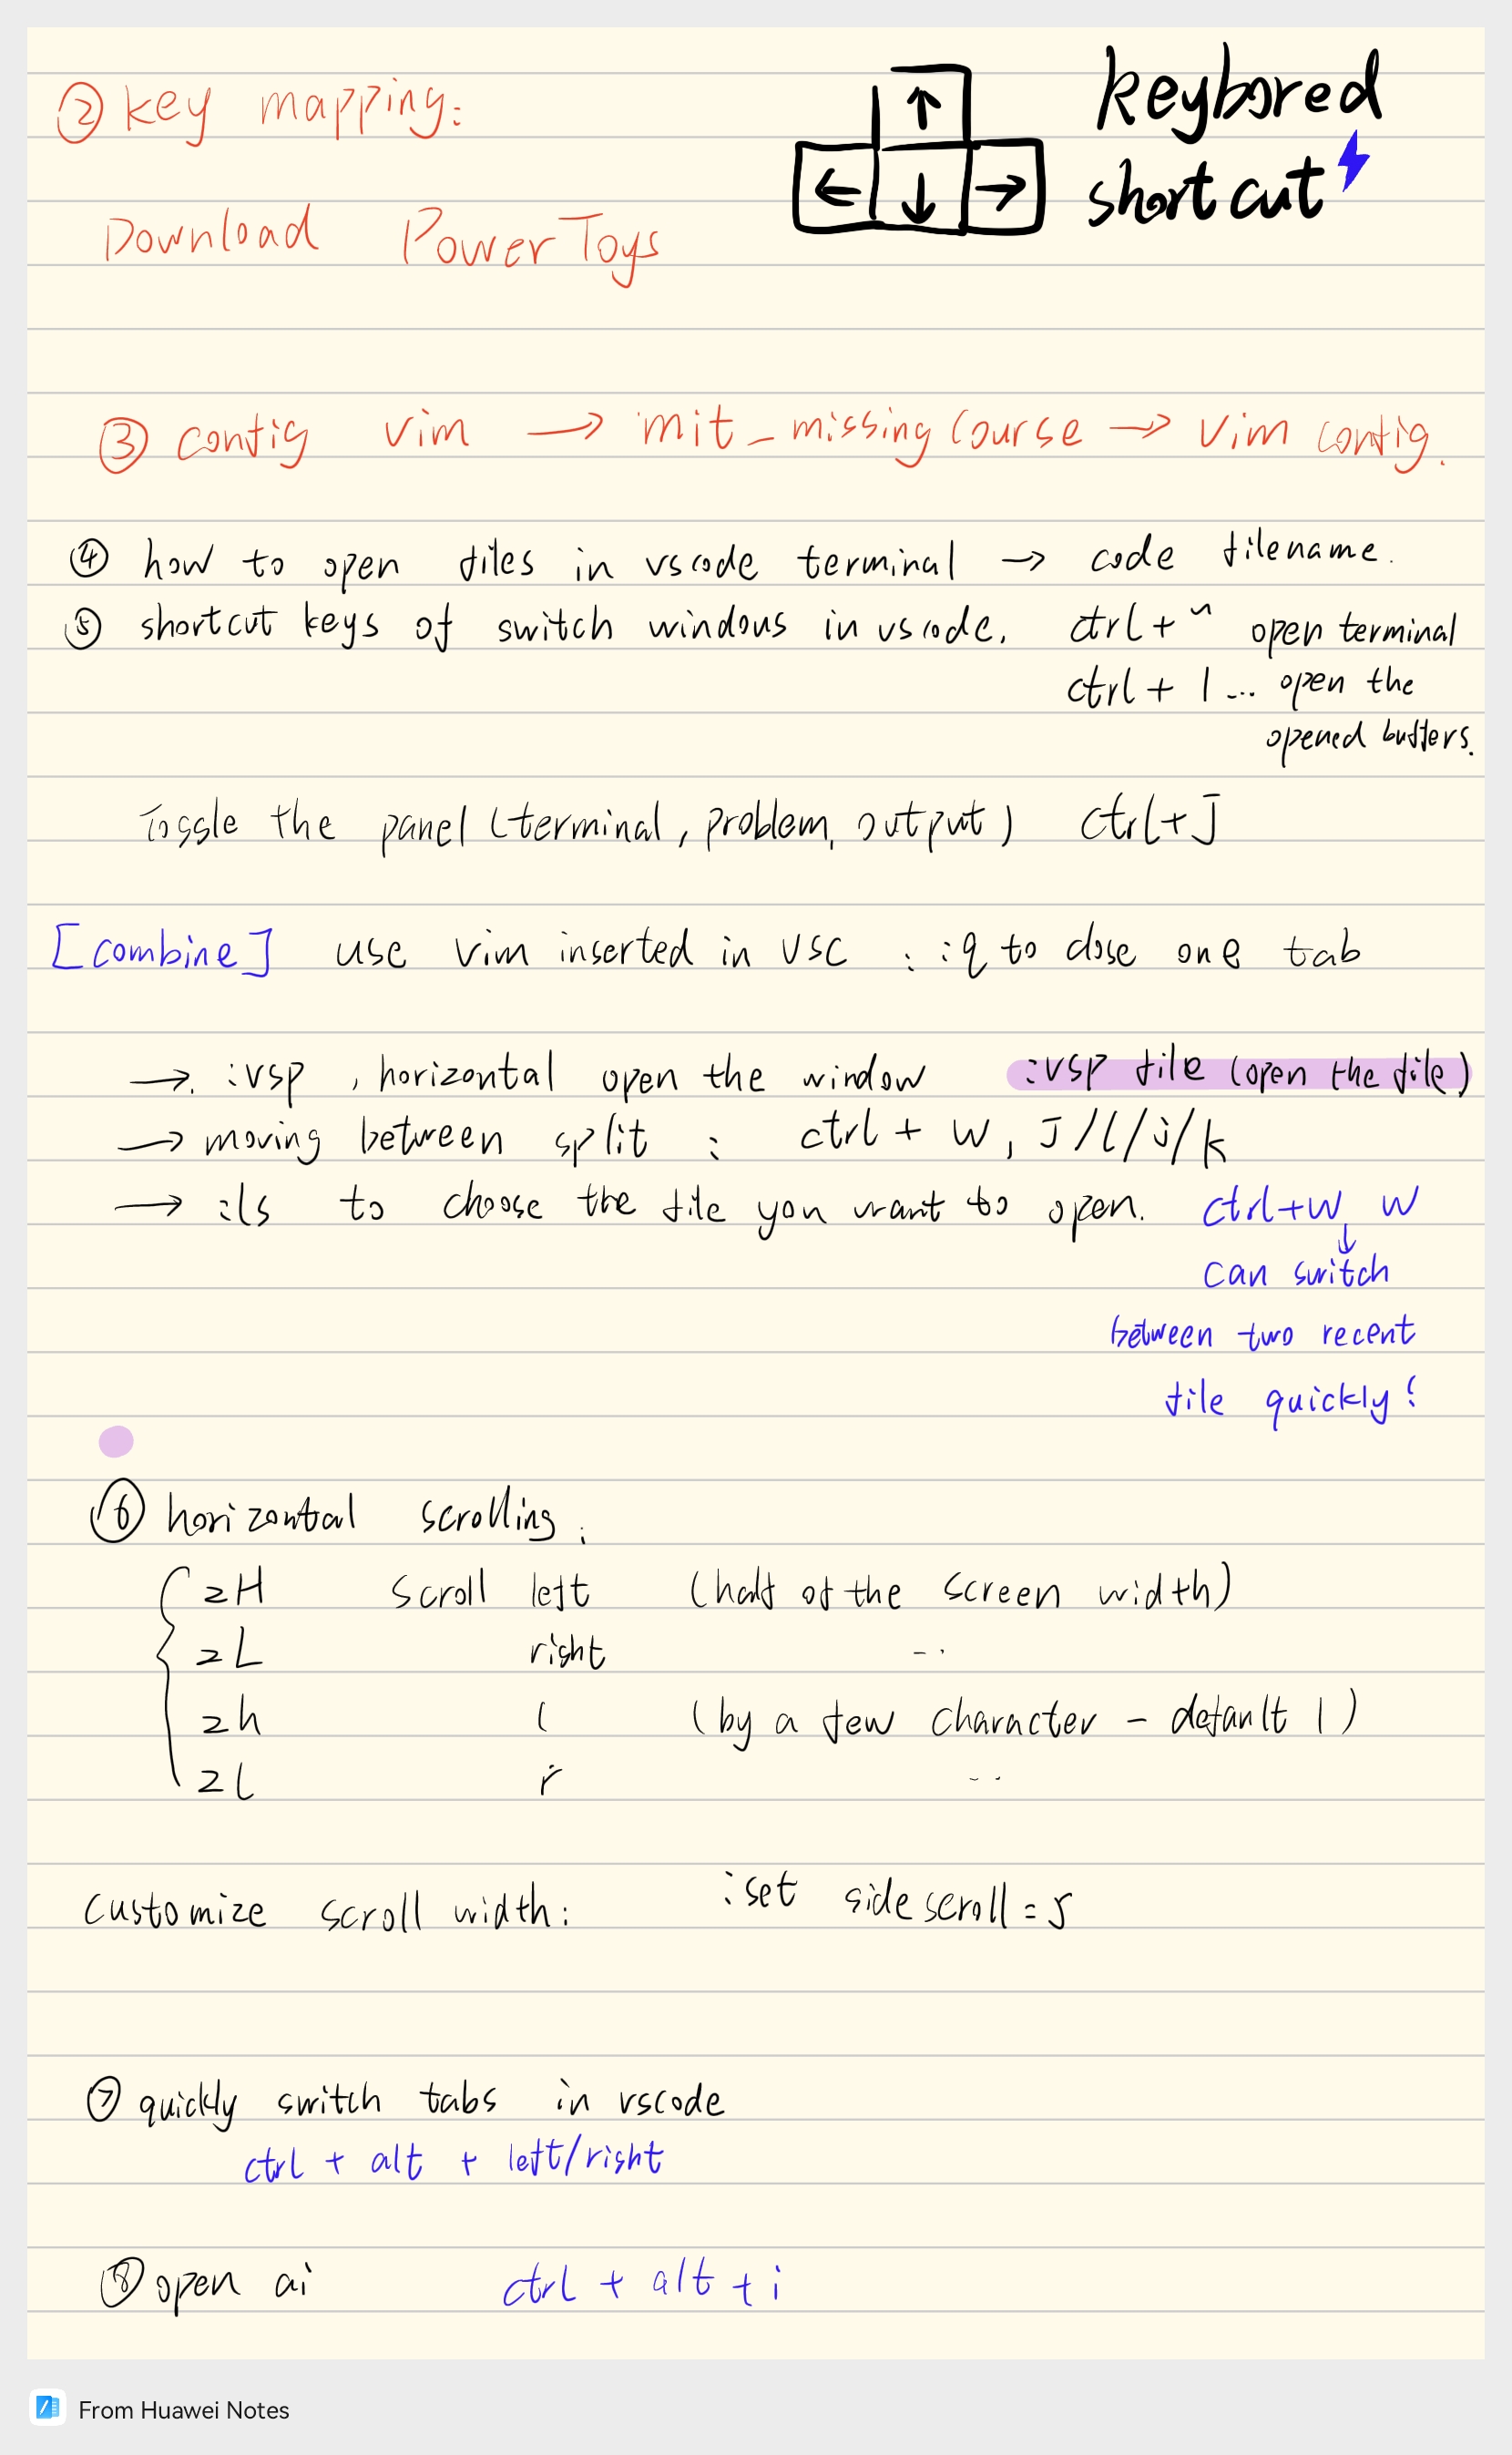 keybored
shortcut
② key mapping:
Download PowerToys
③ config vim → mit_missing course → vim config.
④ how to open files in vscode terminal → code filename.
⑤ shortcut keys of switch windows in vscode. ctrl + ~ open terminal
ctrl + 1 ... open the
opened buffers.
Toggle the panel (terminal, problem, output) ctrl+J
[combine] use vim inserted in VSC : :q to close one tab
→ :vsp , horizontal open the window :vsp file (open the file)
→ moving between split : ctrl + w, J/l/j/k
→ :ls to choose the file you want to open. ctrl+w w
↓
can switch
between two recent
file quickly!
⑥ horizontal scrolling:
zH scroll left (half of the screen width)
zL right ...
zh l (by a few character - default 1)
zl r ...
customize scroll width: :set sidescroll=5
⑦ quickly switch tabs in vscode
ctrl + alt + left/right
⑧ open ai ctrl + alt + i
From Huawei Notes